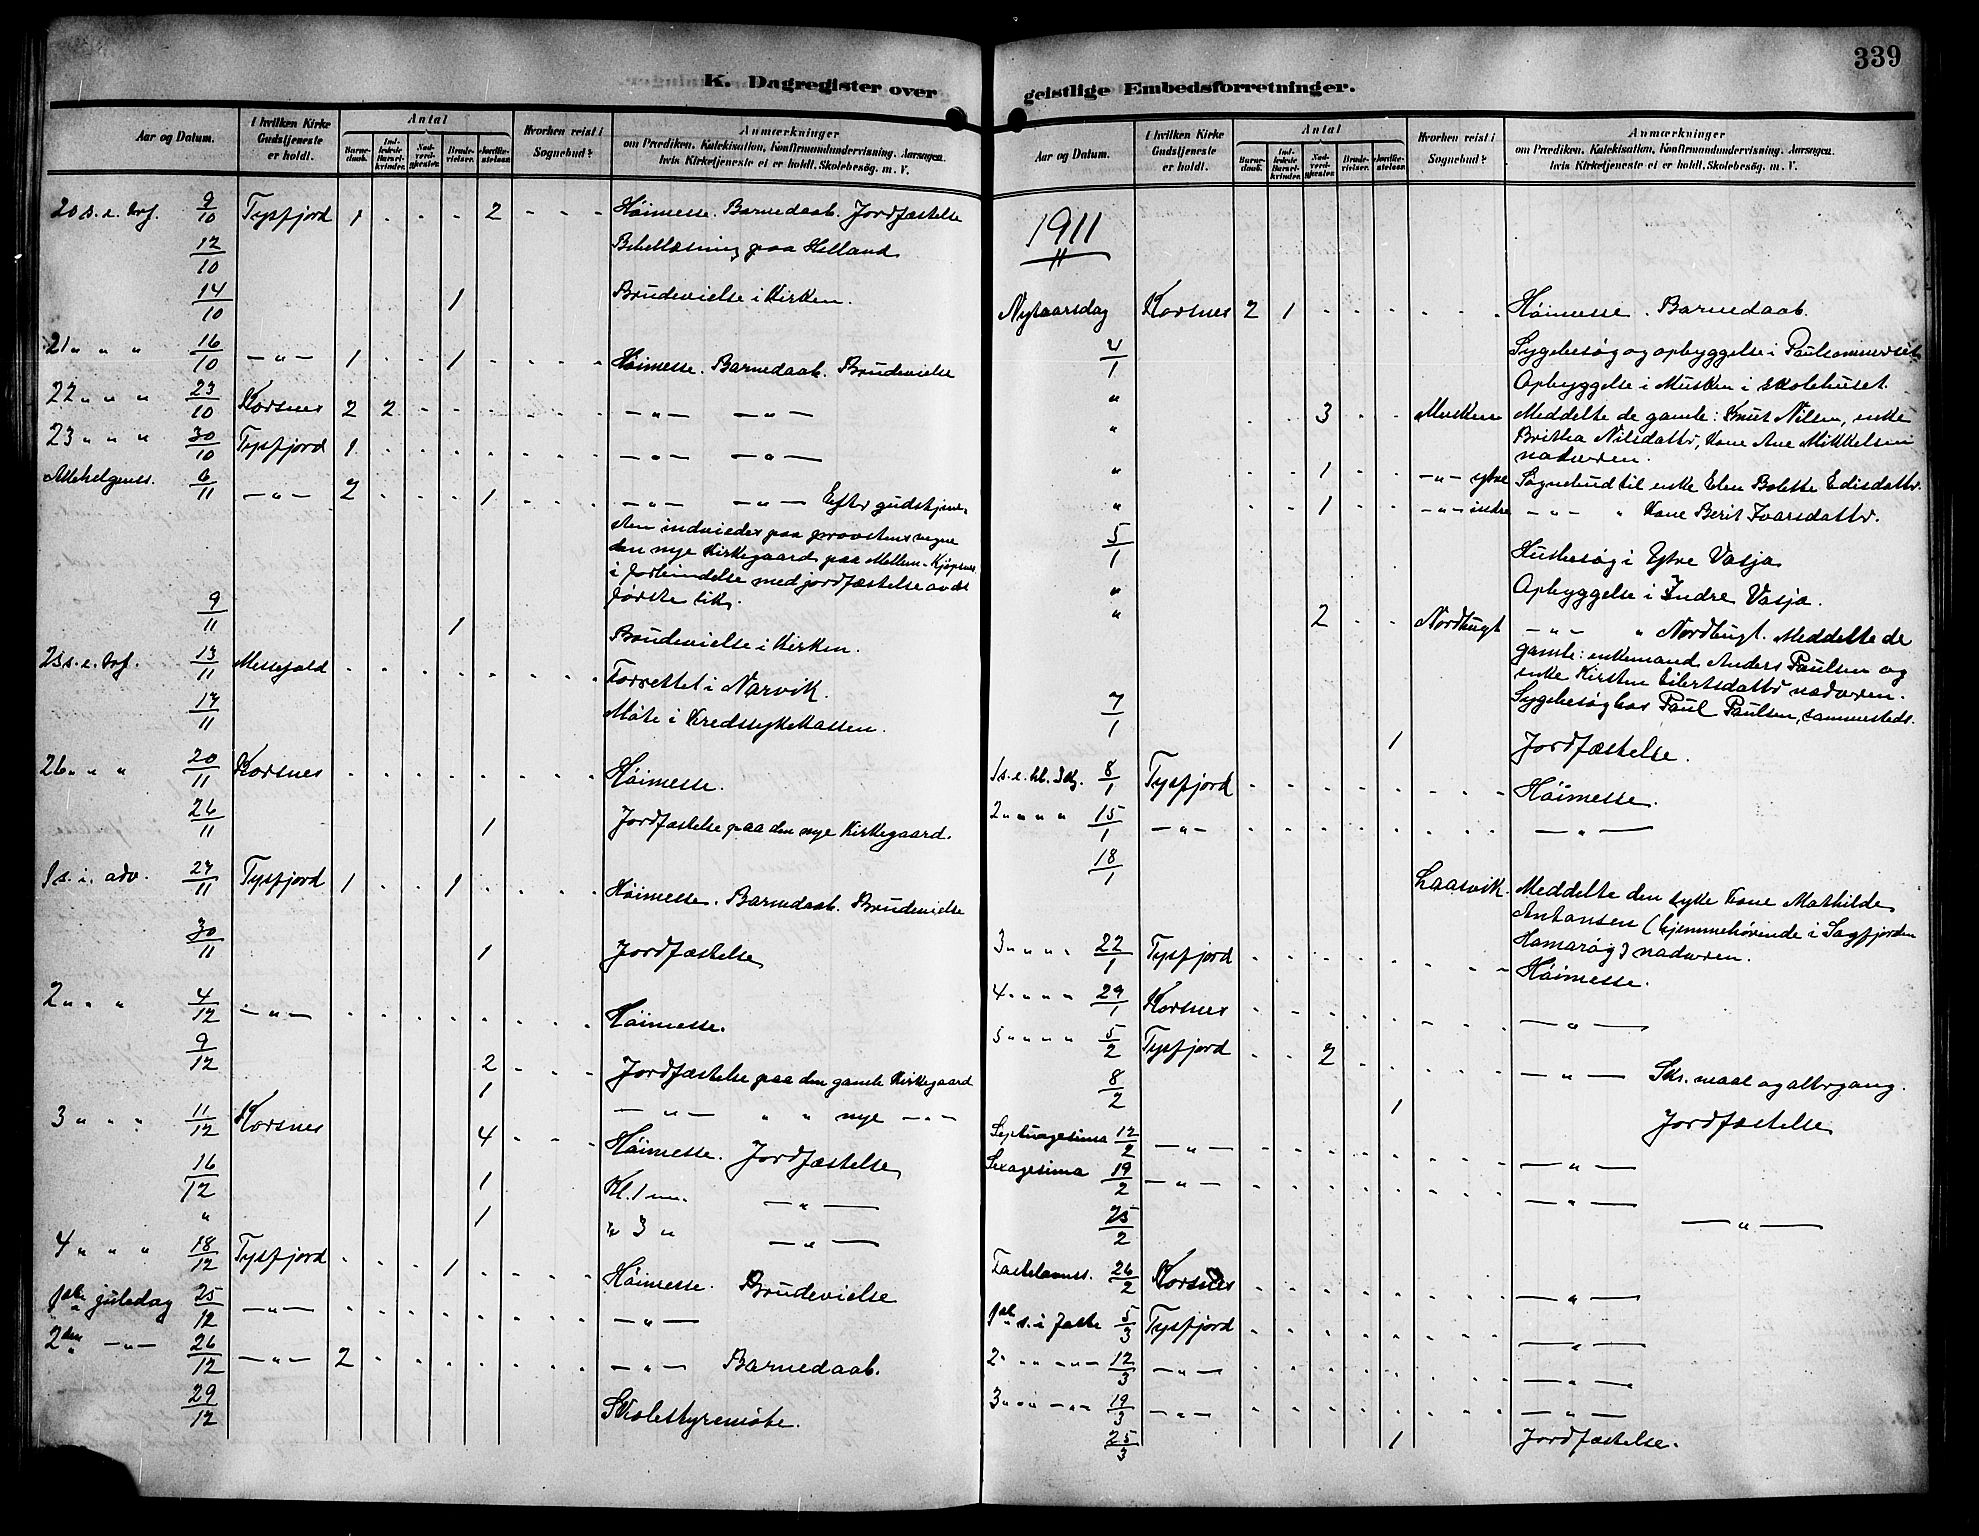 339
K. Dagregister over
geistlige Embedsforretninger.
Aar og Datum.
I hvilken Kirke Gudstjeneste er holdt.
Antal
Barne-daab.
Ind-ledede Barsel-kvinder.
Nad-verd-gjester.
Brude-vielser.
Jordfæ-stelser.
Hvorhen reist i Sognebud?
Anmærkninger
om Prædiken, Katekisation, Konfirmandundervisning, Aarsagen,
hvis Kirketjeneste ei er holdt, Skolebesøg, m. V.
20 s. e. tref. 9/10 Tysfjord 1 . . . 2 - - - Høimesse. Barnedaab. Jordfæstelse
12/10 Bibellæsning paa Helland
14/10 1 Brudevielse i Kirken.
21 " " " 16/10 — " — 1 . . 1 . . . Høimesse. Barnedaab. Brudevielse
22 " " " 23/10 Korsnes 2 2 . . . . . — " — — " —
23 " " " 30/10 Tysfjord 1 . . . . . . — " — — " —
Allehelgenss. 6/11 — " — 2 . . . 1 . . . — " — — " — Efter gudstjene-
sten indviedes paa provstens vegne
den nye Kirkegaard paa Mellem-Kjøpsnes
i forbindelse med jordfæstelse av det
første lik.
9/11 1 Brudevielse i Kirken.
25 s. e. tref. 13/11 Messefald . . . . . . . Forrettet i Narvik.
17/11 Møte i Kredssykekassen.
26 " " " 20/11 Korsnes . . . . . . . Høimesse.
26/11 1 Jordfæstelse paa den nye Kirkegaard.
1 s. i. adv. 27/11 Tysfjord 1 . . 1 . . . Høimesse. Barnedaab. Brudevielse
30/11 1 Jordfæstelse
2 " " " 4/12 — " — . . . . . . . Høimesse.
9/12 2 - - - Jordfæstelse paa den gamle Kirkegaard
1 — " — " " nye — " —
3 " " " 11/12 Korsnes 4 - - - Høimesse. Jordfæstelse
16/12 1 Kl. 1 mm. — " —
" 1 " 3 " — " —
4 " " " 18/12 Tysfjord . . . 1 . . . Høimesse. Brudevielse
1ste juledag 25/12 — " — . . . . . . . — " —
2den — " — 26/12 — " — 2 . . . . . . — " — Barnedaab.
29/12 Skolestyremøte.
Aar og Datum.
I hvilken Kirke Gudstjeneste er holdt.
Antal
Barne-daab.
Ind-ledede Barsel-kvinder.
Nad-verd-gjester.
Brude-vielser.
Jordfæ-stelser.
Hvorhen reist i Sognebud?
Anmærkninger
om Prædiken, Katekisation, Konfirmandundervisning, Aarsagen,
hvis Kirketjeneste ei er holdt, Skolebesøg, m. V.
1911
Nytaarsdag Korsnes 2 1 . . . . . . Høimesse. Barnedaab.
4/1 Sygebesøg og opbyggelse i Paulsommerset
" Opbyggelse i Musken i skolehuset.
" . . 3 . . Musken Meddelte de gamle: Knut Nilsen, enke
Britha Nilsdattr, Kone Ane Mikkelsen
nadveren.
" . . 1 . . — " — ytre Sognebud til enke Elen Bolette Edisdattr.
" . . 1 . . — " — indre — " — " Kone Berit Ivarsdattr.
5/1 Husbesøg i Ytre Vasja
" Opbyggelse i Indre Vasja.
" 2 . . Nordbugt — " — " Nordbugt. Meddelte de
gamle: enkemand Anders Paulsen og
enke Kirsten Eilertsdattr nadveren.
Sygebesøg hos Paul Paulsen, sammesteds.
7/1 1 Jordfæstelse.
1 s. e. hl. 3 kg. 8/1 Tysfjord . . . . . . . Høimesse.
2 " " " " 15/1 — " — . . . . . . . — " —
18/1 Laasvik. Meddelte den syke Kone Mathilde
Antonsen (hjemmehørende i Sagfjorden
Hamarøy) nadveren.
3 " " " " 22/1 Tysfjord . . . . . . . Høimesse.
4 " " " " 29/1 Korsnes . . . . . . . — " —
5 " " " " 5/2 Tysfjord . . 2 . . . . — " — Skr. maal og altergang.
8/2 1 Jordfæstelse
Septuagesima 12/2 — " — . . . . . . . — " —
Sexagesima 19/2 — " — . . . . . . . — " —
25/2 — " —
Fastelavnss. 26/2 Korsnes . . . . . . . — " —
1ste s. i faste 5/3 Tysfjord . . . . . . . — " —
2 " " " — " — 12/3 — " — . . . . . . . — " —
3 " " " — " — 19/3 — " — . . . . . . . — " —
25/3 1 Jordfæstelse.